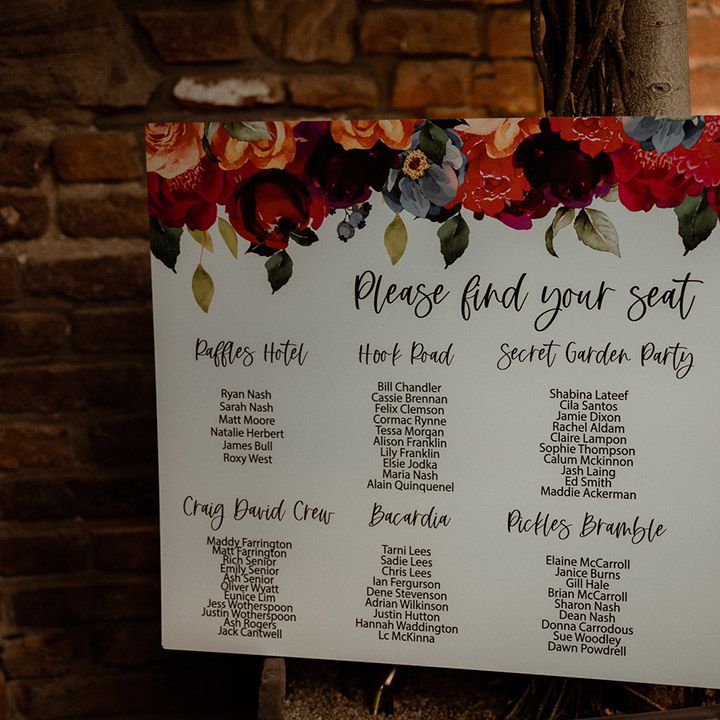 Please find your seat
Raffles Hotel
Ryan Nash
Sarah Nash
Matt Moore
Natalie Herbert
James Bull
Roxy West
Hook Road
Bill Chandler
Cassie Brennan
Felix Clemson
Cormac Rynne
Tessa Morgan
Alison Franklin
Lily Franklin
Elsie Jodka
Maria Nash
Alain Quinquenel
Secret Garden Party
Shabina Lateef
Cila Santos
Jamie Dixon
Rachel Aldam
Claire Lampon
Sophie Thompson
Calum Mckinnon
Jash Laing
Ed Smith
Maddie Ackerman
Craig David Crew
Maddy Farrington
Matt Farrington
Rich Senior
Emily Senior
Ash Senior
Oliver Wyatt
Eunice Lim
Jess Wotherspoon
Justin Wotherspoon
Ash Rogers
Jack Cantwell
Bacardia
Tarni Lees
Sadie Lees
Chris Lees
Ian Fergurson
Dene Stevenson
Adrian Wilkinson
Justin Hutton
Hannah Waddington
Lc McKinna
Pickles Bramble
Elaine McCarroll
Janice Burns
Gill Hale
Brian McCarroll
Sharon Nash
Dean Nash
Donna Carrodous
Sue Woodley
Dawn Powdrell